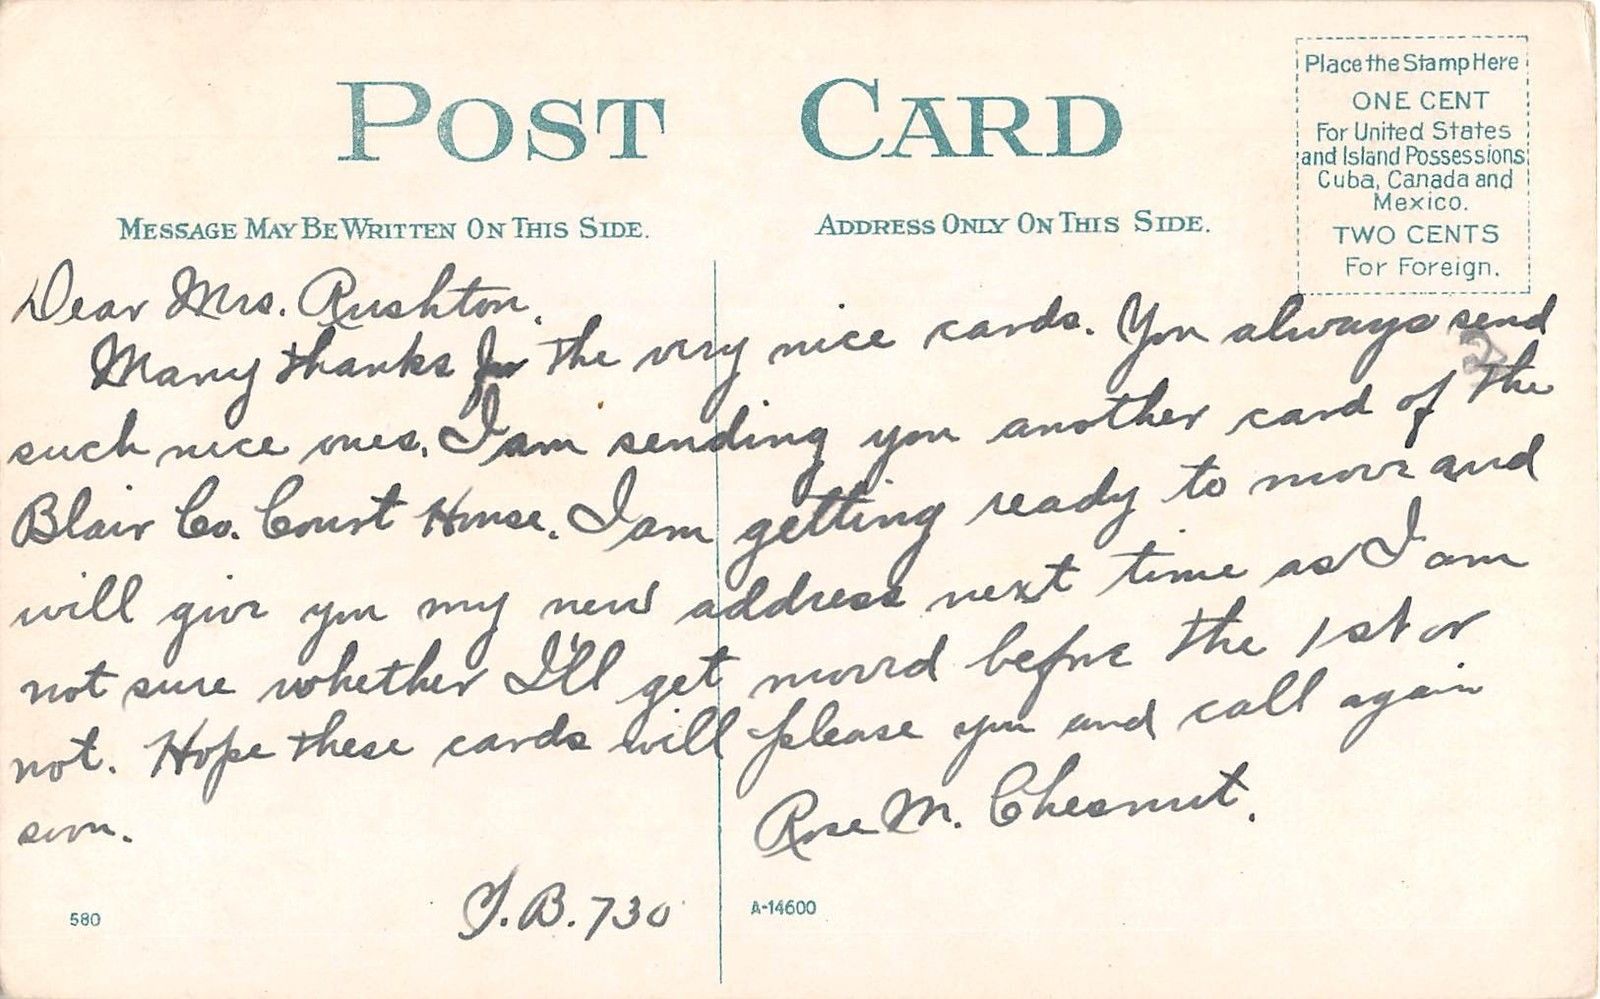 POST CARD
Place the Stamp Here
ONE CENT
For United States
and Island Possessions
Cuba, Canada and
Mexico.
TWO CENTS
For Foreign.
MESSAGE MAY BE WRITTEN ON THIS SIDE.
ADDRESS ONLY ON THIS SIDE.
Dear Mrs. Rushton,
Many thanks for the very nice cards. You always send
such nice ones. I am sending you another card of the
Blair Co. Court House. I am getting ready to move and
will give you my new address next time as I am
not sure whether I'll get moved before the 1st or
not. Hope these cards will please you and call again
soon.
Rose M. Chesnut.
T.B. 730
580
A-14600
2